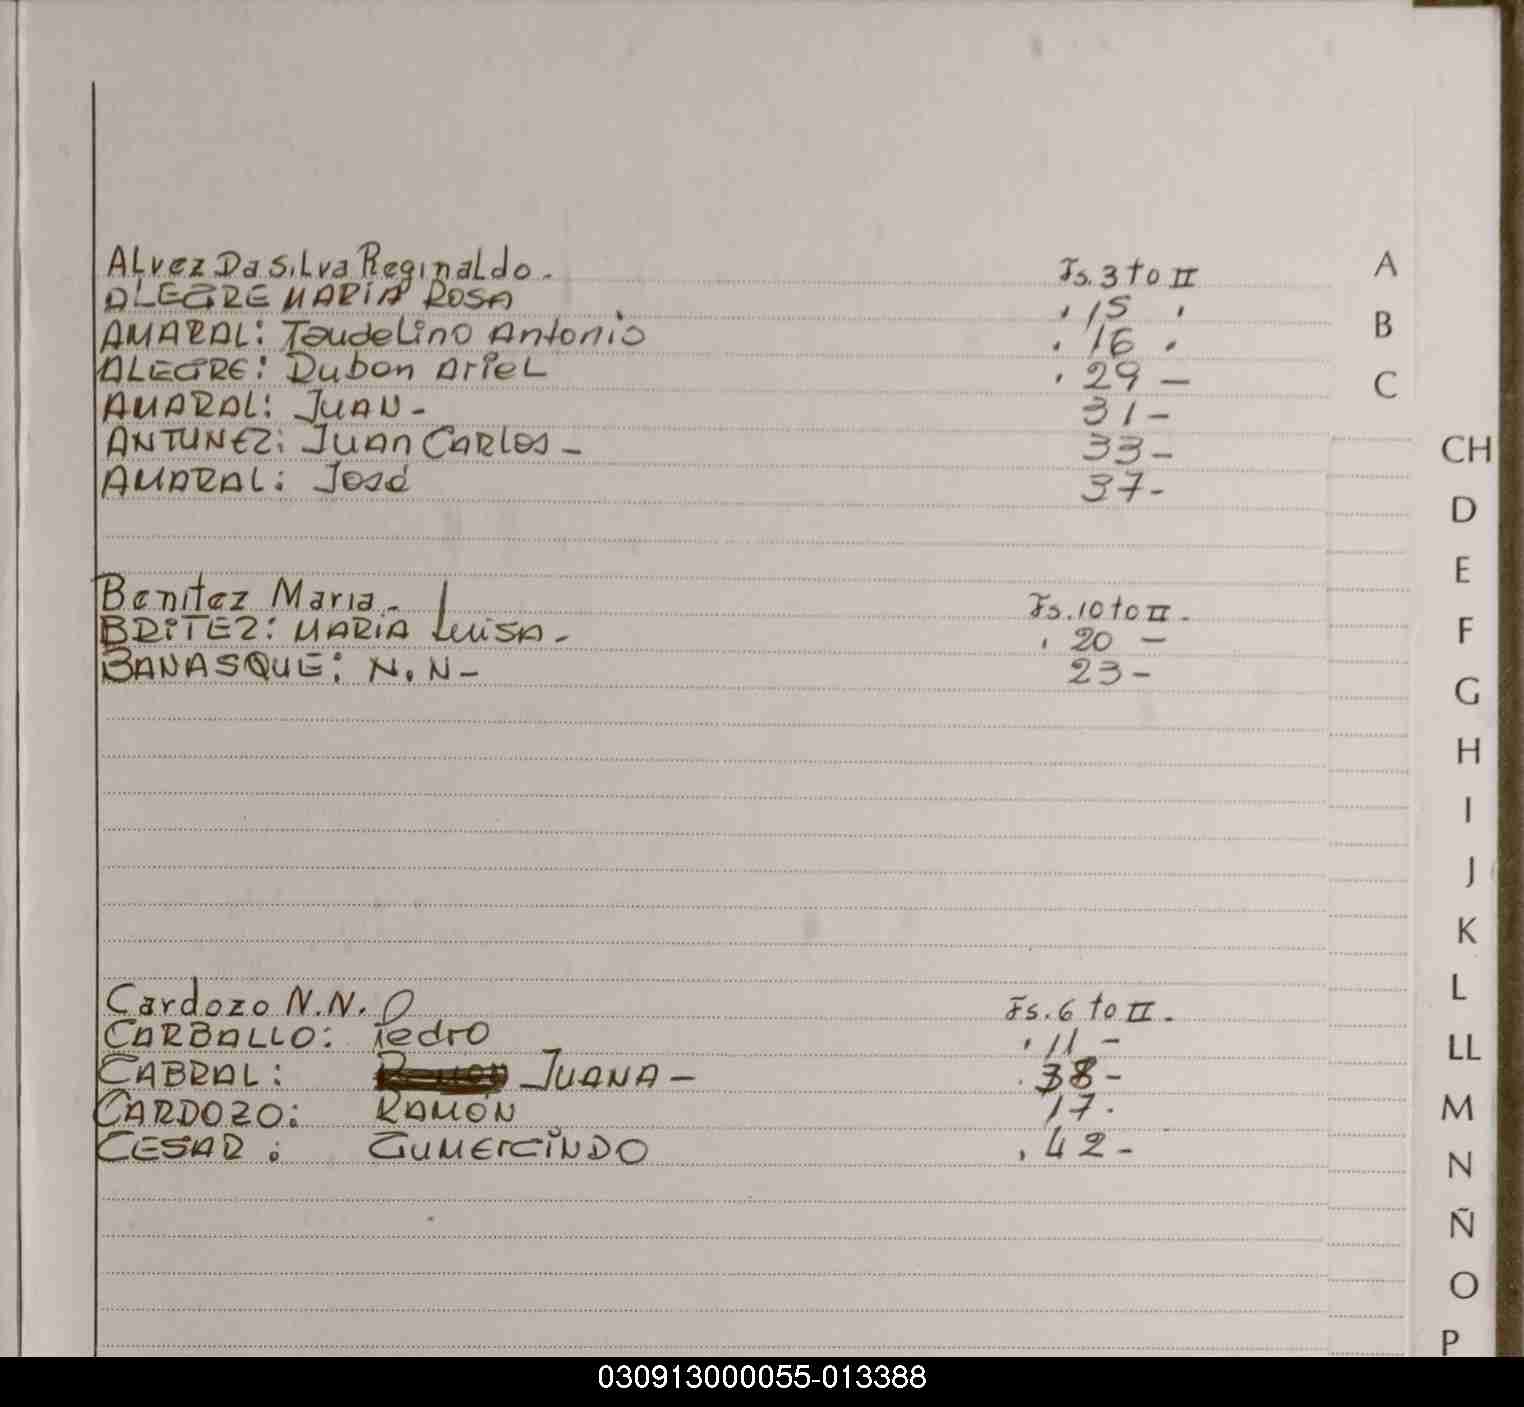 Alvez Da Silva Reginaldo. Fs. 3 to II
ALEGRE MARIA ROSA . 15 .
AMARAL: Toudelino Antonio . 16 .
ALEGRE: Dubon Ariel . 29 -
AMARAL: JUAN - 31 -
ANTUNEZ: JUAN CARLOS - 33 -
AMARAL: José 37 -
Benitez Maria - Fs. 10 to II -
BRITEZ: MARIA Luisa - . 20 -
BANASQUE: N.N - 23 -
Cardozo N.N. Fs. 6 to II -
CARBALLO: Pedro . 11 -
CABRAL: JUANA - . 38 -
CARDOZO: RAMÓN 17 .
CESAR: GUMERCINDO . 42 -
A
B
C
CH
D
E
F
G
H
I
J
K
L
LL
M
N
Ñ
O
P
030913000055-013388